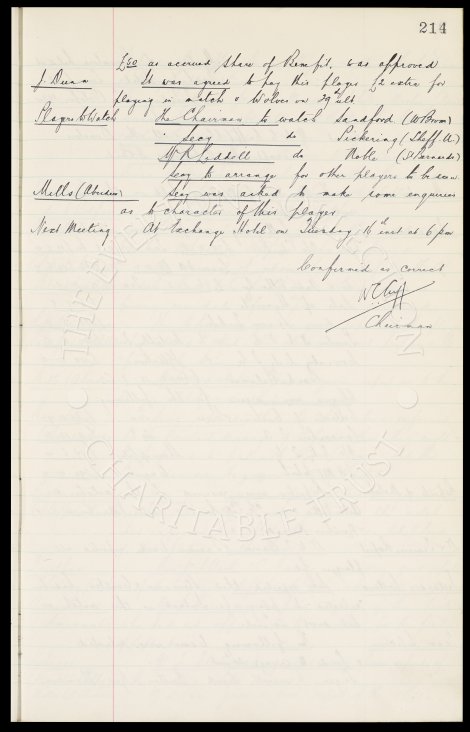 214
£50 as accrued share of Benefit, was approved
J Dunn It was agreed to pay this player £2 extra for
playing in match v Wolves on 29th ult
Players to Watch The Chairman to watch Sandford (W Brom)
" Secy do Pickering (Sheff. U.)
Mr R Liddell do Roble (St Bernards)
Secy to arrange for other players to be seen
Mills (Aberdeen) Secy was asked to make some enquiries
as to character of this player
Next Meeting At Exchange Hotel on Tuesday 16th inst at 6 pm
Confirmed as correct
W C Cuff
Chairman
THE EVERTON COLLECTION
CHARITABLE TRUST